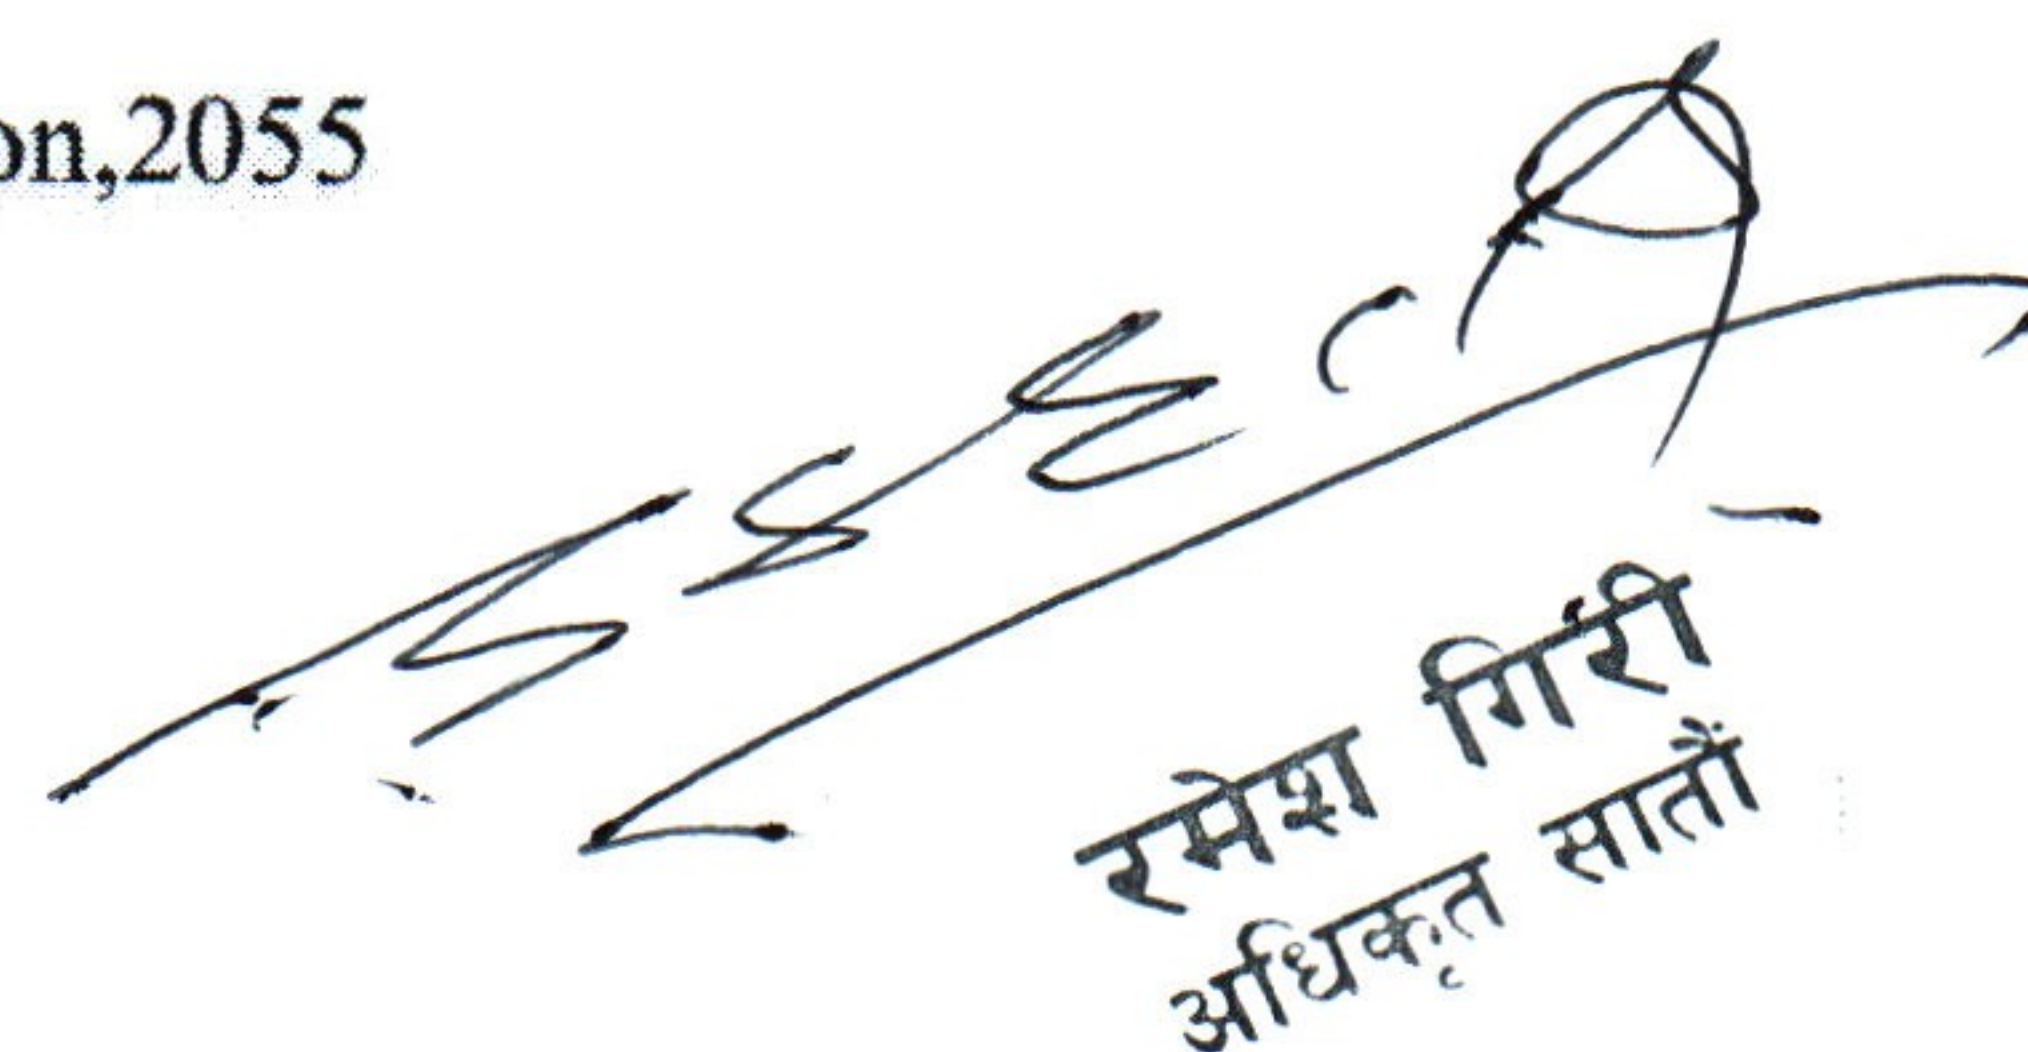 on,2055
रमेश गिरी
अधिकृत सातौं